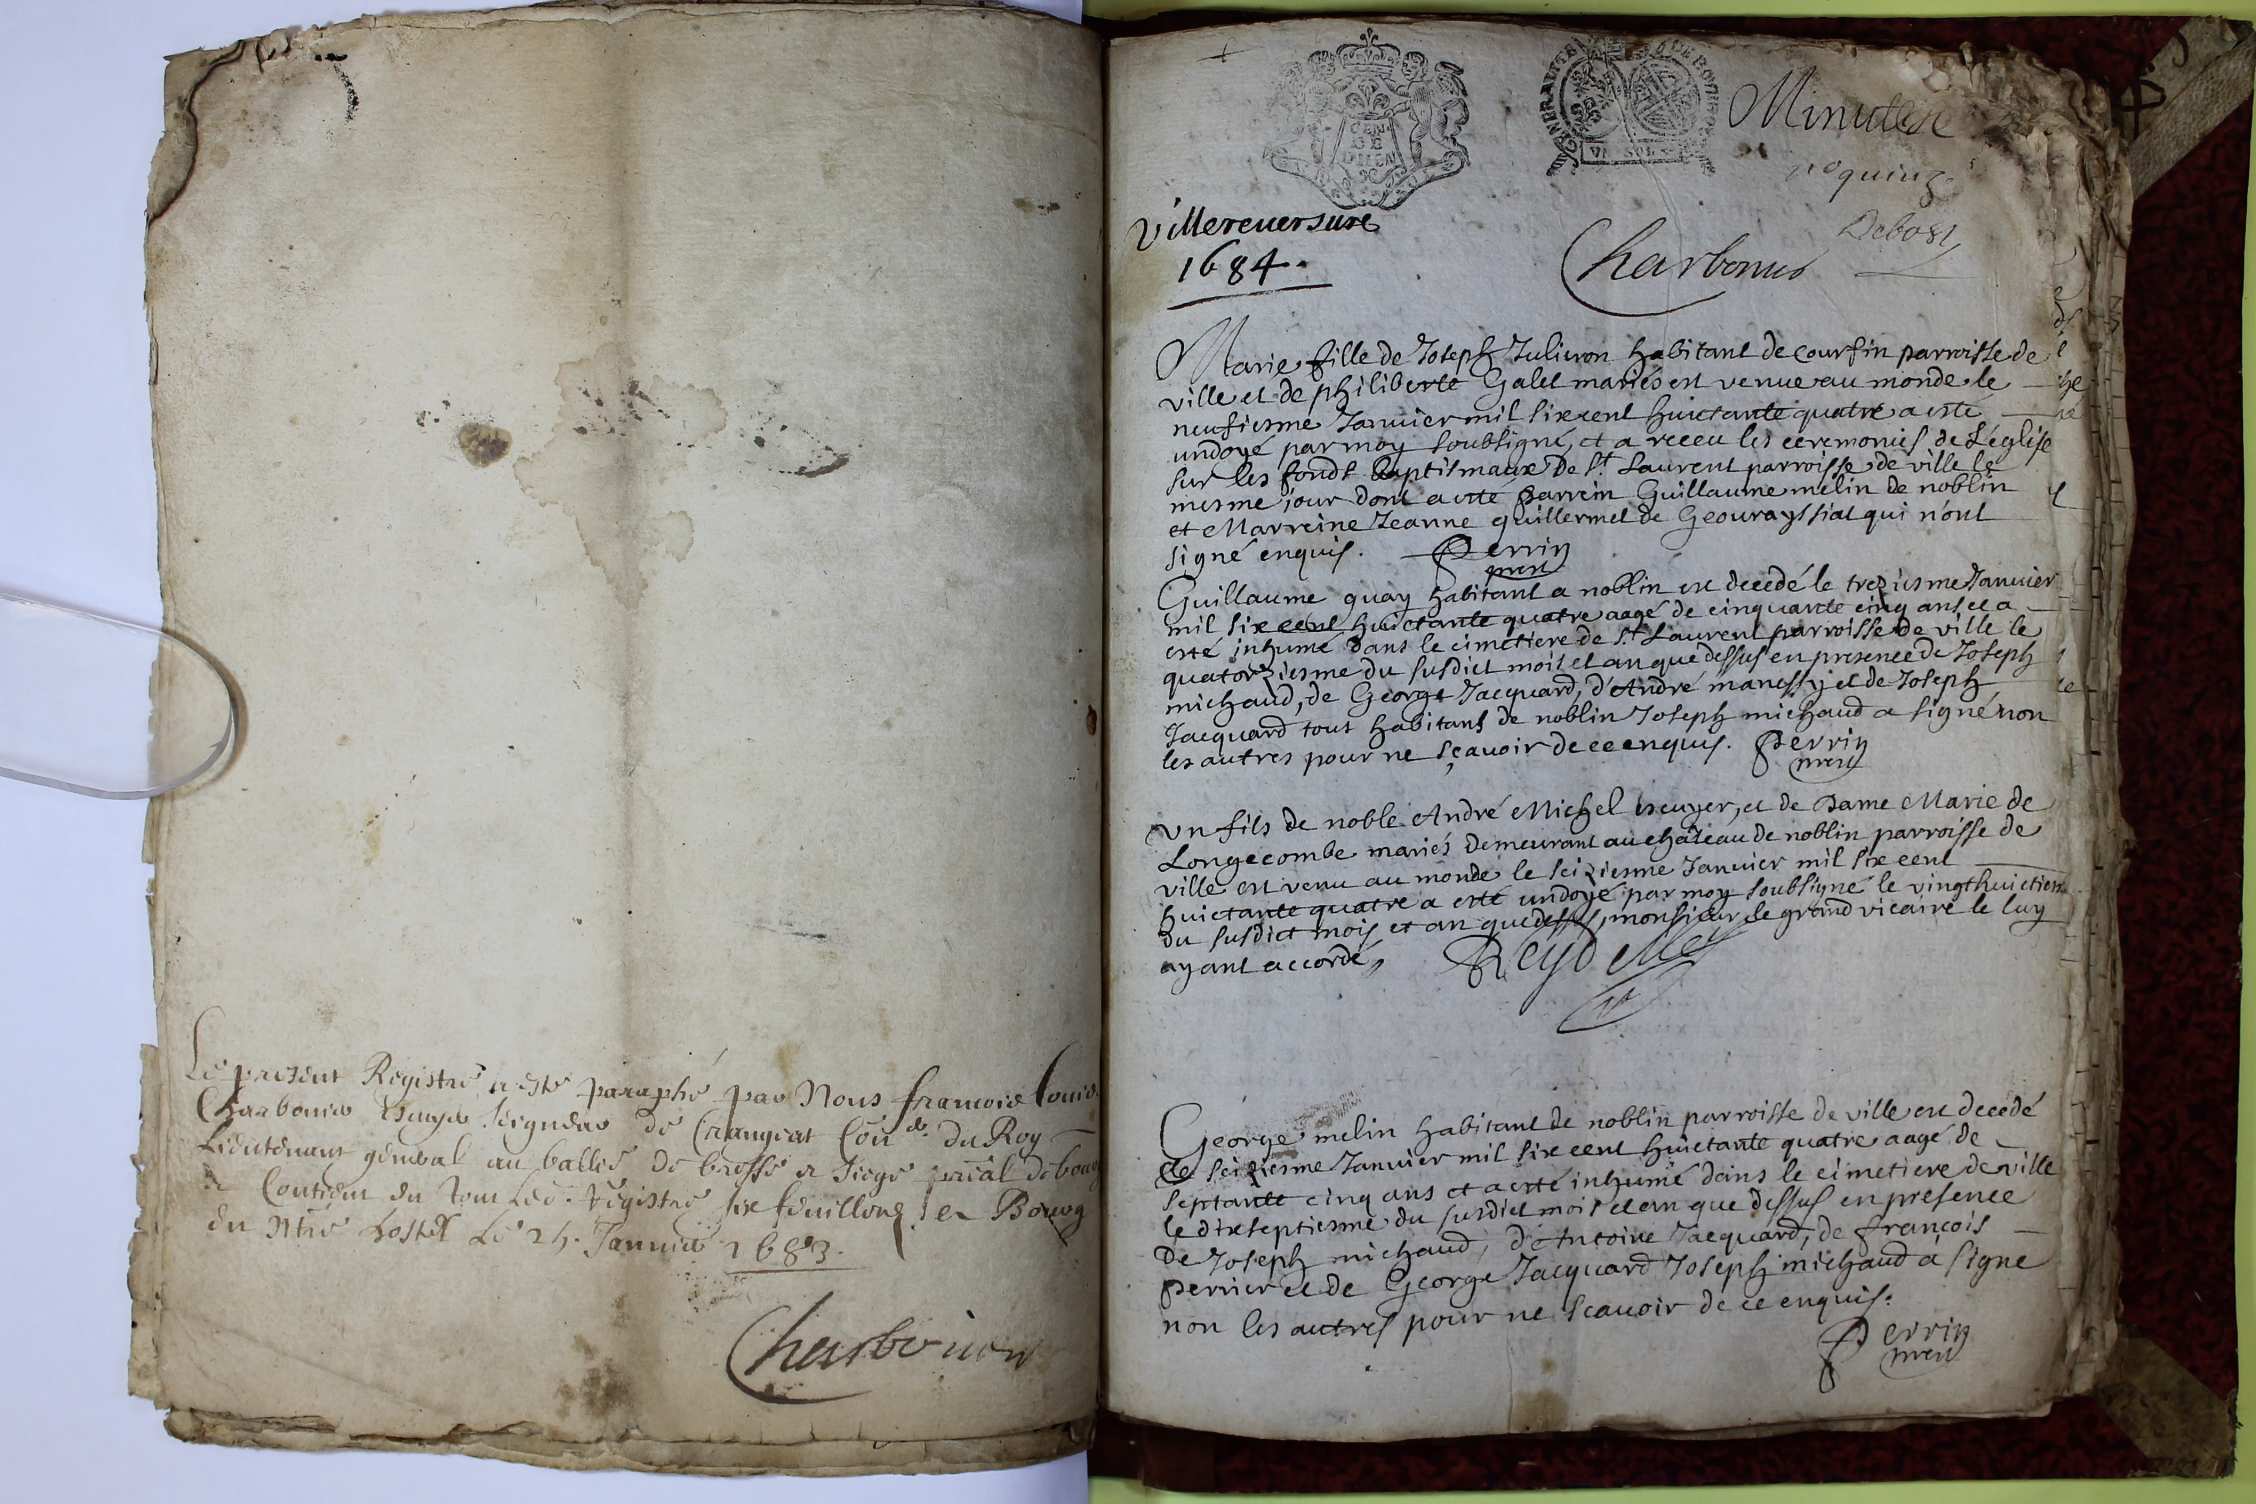 Le present Registre a esté paraphé par Nous francois Louis
Charbonier Escuyer Seigneur de Crangeat Con.er du Roy
Lieutenant general au balliage de bresse et siege p̃ñal de bourg
contient en tout led. Registre six feuillons. A Bourg
en N̄r̄e hostel Le 24. Janvier 1683.
Charbonier
GENERALITE DE BOVRGO
VN SOL
Minutte
quinze
Villereuersure
1684.
Charbonier
Marie fille de Joseph Julieron habitant de courfin parroisse de
ville et de philiberte Galet mariés est venue au monde le
neufiesme Januier mil six cent huictante quatre a esté
undoyé par moy soubsigné, et a receu les ceremonies de L'église
sur les fonds baptismaux De St. Laurent parroisse de ville le
mesme jour dont a esté parrein Guillaume melin de noblin
et Marreine Jeanne guillermet de Geourayssiat qui n'ont
signé enquis. Perrin
Guillaume quay habitant a noblin est decedé le treziesme Januier
mil six cent huictante quatre aagé de cinquante cinq ans et a
esté inhumé dans le cimetiere de St. Laurent parroisse de ville le
quatorziesme du susdict mois et an que dessus en presence De Joseph
michaud, de George Jacquard, d'André manessy et de Joseph
Jacquard tout habitans de noblin Joseph michaud a signé non
les autres pour ne sçauoir de ce enquis. Perrin
vn fils de noble André Michel escuyer, et de Dame Marie de
Longecombe mariés demeurant au château de noblin parroisse de
ville est venu au monde le seiziesme Januier mil six cent
huictante quatre a esté undoyé par moy soubsigné le vingthuictiesme
du susdict mois et an que dessus, monsieur le grand vicaire le luy
ayant accordé, Reydellet
George melin habitant de noblin parroisse de ville est decedé
le seiziesme Januier mil six cent huictante quatre aagé de
septante cinq ans et a esté inhumé dans le cimetiere de ville
le dixseptiesme du susdict mois et an que dessus en presence
De Joseph michaud, d'Antoine Jacquard, de françois
perrier et de George Jacquard Joseph michaud a signe
non les autres pour ne scauoir de ce enquis.
Perrin